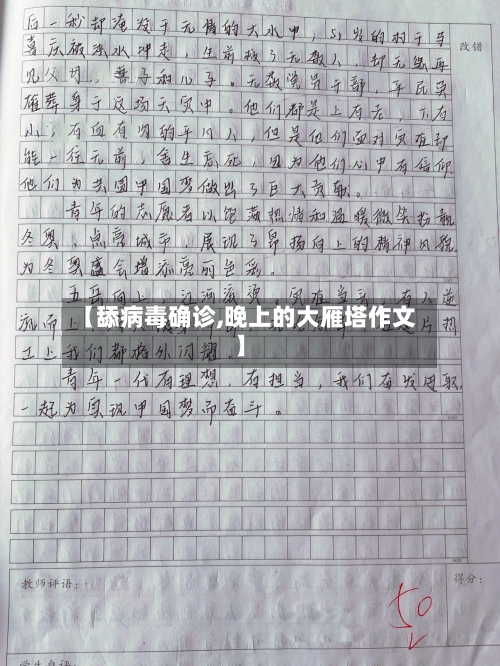 后一秒却淹没于无情的大水中，51岁的村干马
喜庆被洪水冲走，生前救了无数人，却无缘再
见父母、妻子和儿子。无数党员干部，平民英
雄葬身于这场天灾中。他们都是上有老，下有
小，有血有肉的平凡人，但是他们面对灾难却能
一往无前，舍生忘死，因为他们心中有信仰
他们为共圆中国梦做出了巨大贡献。
青年的志愿者以饱满热情和温暖微笑扮靓
冬奥、点亮城市，展现了昂扬向上的精神风貌
为冬奥盛会增添亮丽色彩。
五岳向上，江河滚烫，灾难当头，有人逆
风而上
【舔病毒确诊,晚上的大雁塔作文
】
片热
土上我们都格外闪耀。
青年一代有理想，有担当，我们奋发图强
一起为实现中国梦而奋斗。
改错
教师评语：
得分：
50
学生自评：